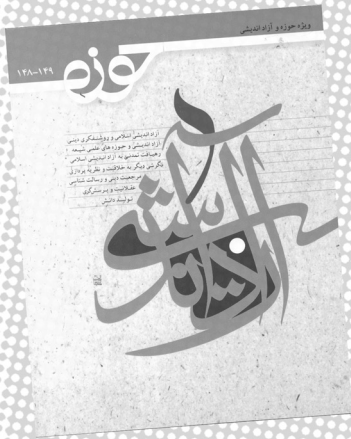 ویژه حوزه و آزاد اندیشی
حوزه
۱۴۸-۱۴۹
آزاد اندیشی اسلامی و روشنفکری دینی
آزاد اندیشی و حوزه های علمی شیعه
رهیافت تمدنی به آزاد اندیشی اسلامی
نگرشی دیگر به خلاقیت و نظریه پردازی
مرجعیت دینی و رسالت شناسی
عقلانیت و پرسشگری
تولید دانش
آزاد اندیشی